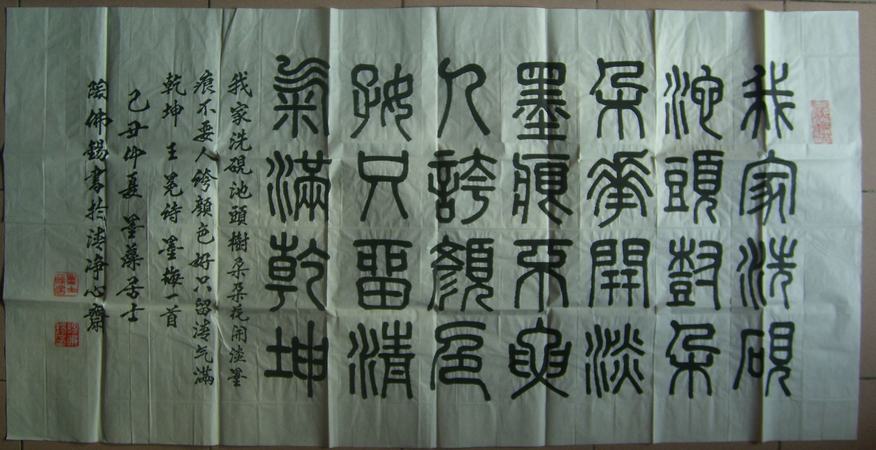 我家洗硯
池頭樹朵
朵華開淡
墨痕不要
人誇顏色
好只留清
氣滿乾坤
我家洗硯池頭樹朵朵花開淡墨
痕不要人誇顏色好只留清气滿
乾坤 王冕詩墨梅一首
己丑仲夏 墨藻居士
陰佛錫書於清净心齋